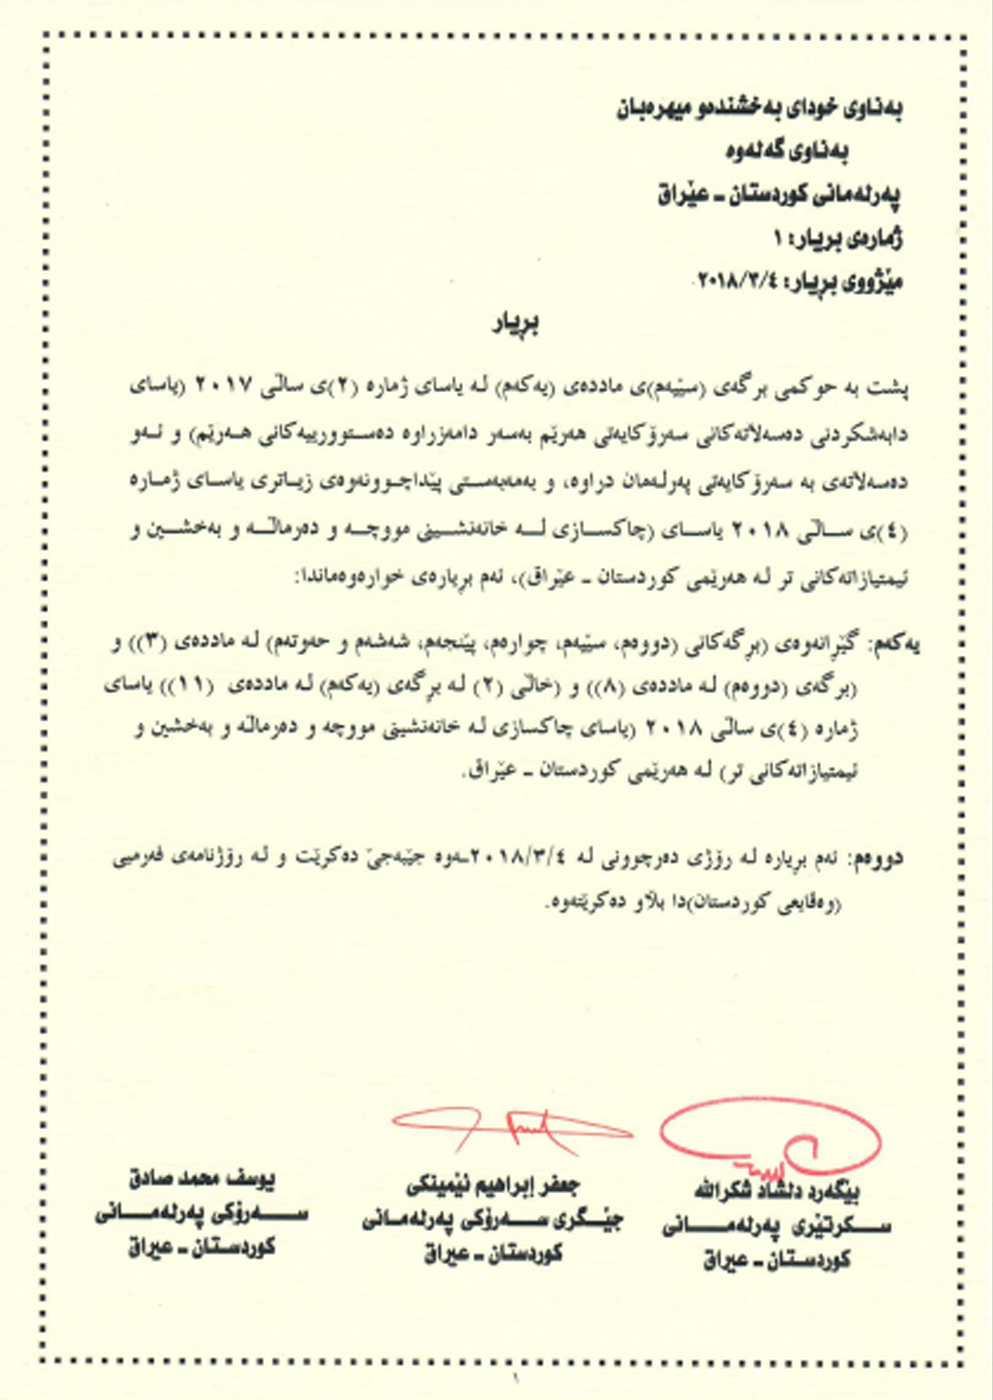 بەناوی خودای بەخشندەو میهرەبان
بەناوی گەلەوە
پەرلەمانی کوردستان ـ عێراق
ژمارەی بڕیار: ١
مێژووی بڕیار: ٢٠١٨/٣/٤
بڕیار
پشت بە حوکمی برگەی (سێیەم)ی ماددەی (یەکەم) لە یاسای ژمارە (٢)ی ساڵی ٢٠١٧ (یاسای
دابەشکردنی دەسەڵاتەکانی سەرۆکایەتی هەرێم بەسەر دامەزراوە دەستوورییەکانی هەرێم) و ئەو
دەسەڵاتەی بە سەرۆکایەتی پەرلەمان دراوە، و بەمەبەستی پێداچوونەوەی زیاتری یاسای ژمارە
(٤)ی ساڵی ٢٠١٨ یاسای (چاکسازی لە خانەنشینی مووچە و دەرماڵە و بەخشین و
ئیمتیازاتەکانی تر لە هەرێمی کوردستان ـ عێراق)، ئەم بڕیارەی خوارەوەماندا:
یەکەم: گێڕانەوەی (بڕگەکانی (دووەم، سێیەم، چوارەم، پێنجەم، شەشەم و حەوتەم) لە ماددەی (٣)) و
(برگەی (دووەم) لە ماددەی (٨)) و (خاڵی (٢) لە برگەی (یەکەم) لە ماددەی (١١)) یاسای
ژمارە (٤)ی ساڵی ٢٠١٨ (یاسای چاکسازی لە خانەنشینی مووچە و دەرماڵە و بەخشین و
ئیمتیازاتەکانی تر) لە هەرێمی کوردستان ـ عێراق.
دووەم: ئەم بڕیارە لە رۆژی دەرچوونی لە ٢٠١٨/٣/٤ـەوە جێبەجێ دەکرێت و لە رۆژنامەی فەرمیی
(وەقایعی کوردستان)دا بڵاو دەکرێتەوە.
بێگەرد دلشاد شکرالله
سکرتێری پەرلەمانی
کوردستان ـ عیراق
جعفر إبراهیم ئێمینکی
جێگری سەرۆکی پەرلەمانی
کوردستان ـ عیراق
یوسف محمد صادق
سەرۆکی پەرلەمانی
کوردستان ـ عیراق
١